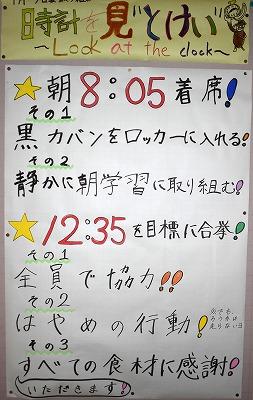 時計を見"とけい"
～Look at the clock～
★朝8:05着席!
その1
黒カバンをロッカーに入れる!
その2
静かに朝学習に取り組む!
★12:35を目標に合掌!
その1
全員で協力!!
その2
はやめの行動!
その3
すべての食材に感謝!
いただきます!